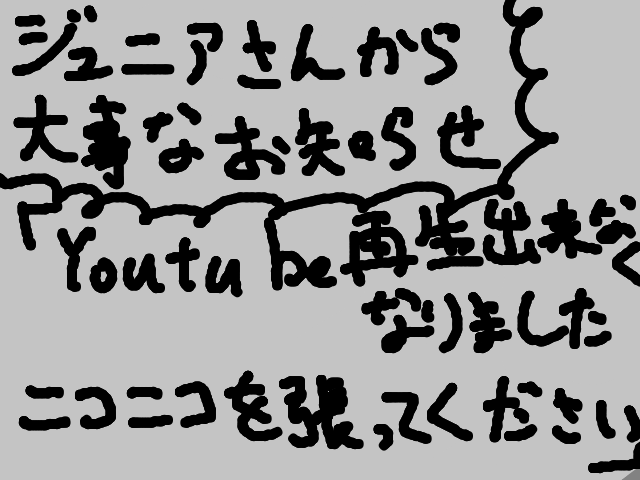 ジュニアさんから
大事なお知らせ
Youtube再生出来なく
なりました
ニコニコを張ってください